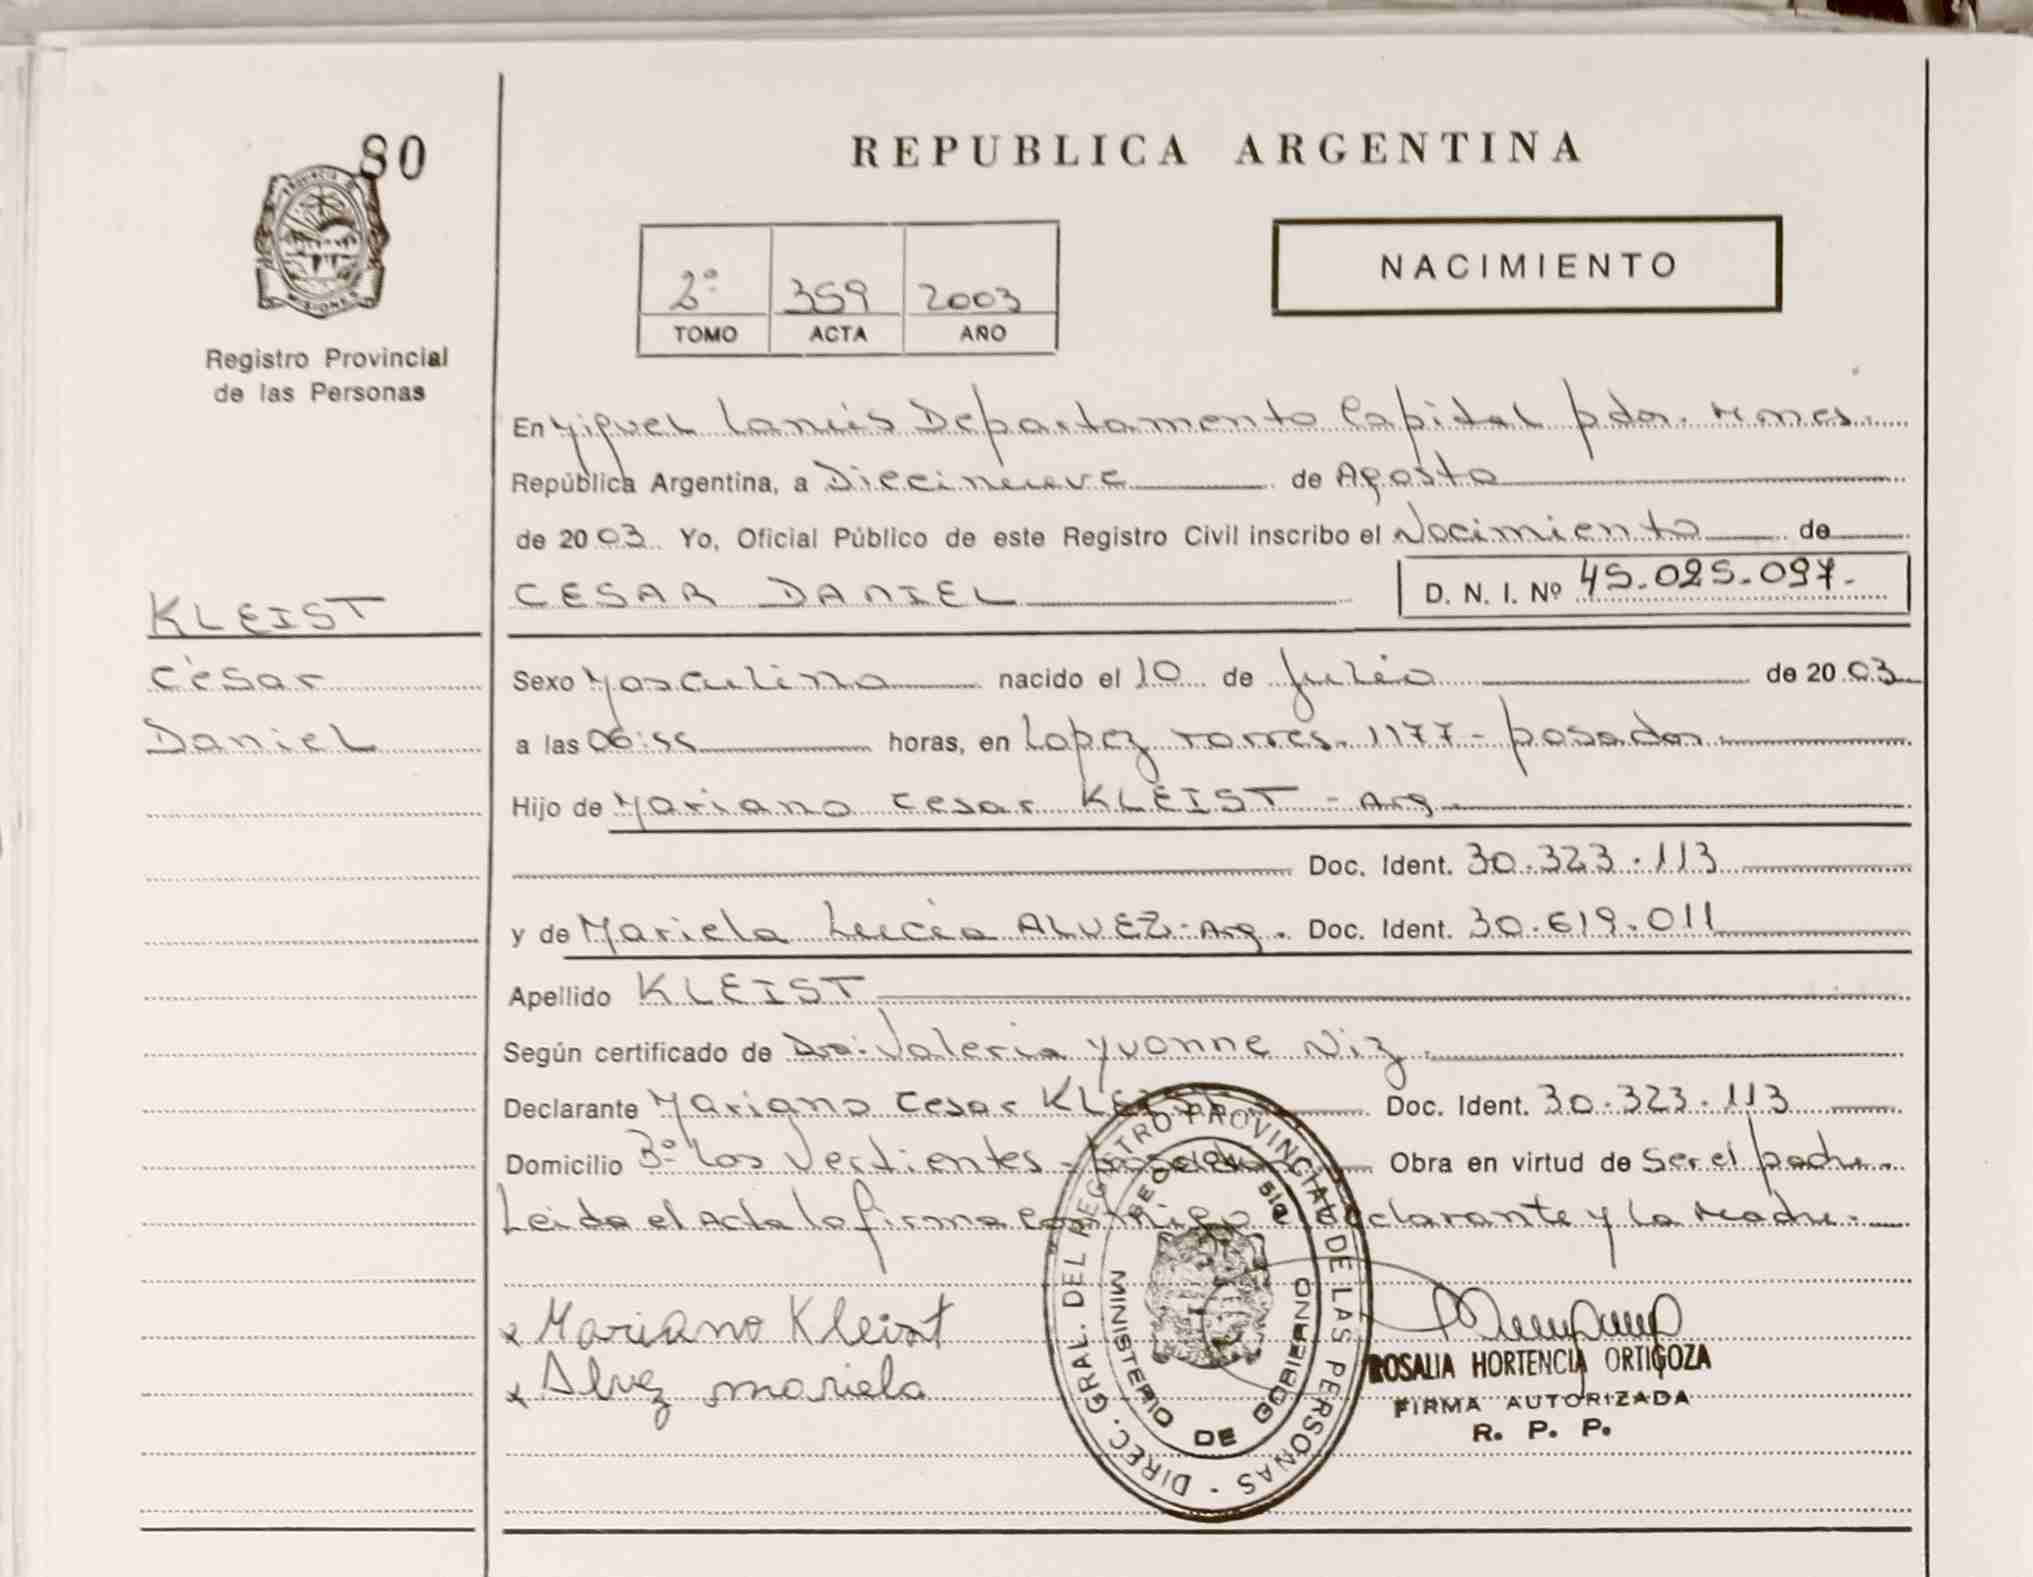 80
REPUBLICA ARGENTINA
PROVINCIA DE MISIONES
Registro Provincial
de las Personas
2º 359 2003
TOMO ACTA AÑO
NACIMIENTO
En Miguel Lanús Departamento Capital pdas. Mnes.
República Argentina, a Diecinueve de Agosto
de 2003 Yo, Oficial Público de este Registro Civil inscribo el Nacimiento de
CESAR DANIEL D. N. I. Nº 45.025.097.-
KLEIST
César
Daniel
Sexo Masculino nacido el 10 de Julio de 2003
a las 06:55 horas, en Lopez Torres. 1177 - posadas.
Hijo de Mariano Cesar KLEIST - Arg.
Doc. Ident. 30.323.113
y de Mariela Lucia ALVEZ - Arg. Doc. Ident. 30.619.011
Apellido KLEIST
Según certificado de Dra. Valeria Yvonne Niz.
Declarante Mariano Cesar KLEIST Doc. Ident. 30.323.113
Domicilio Bº Las Vertientes - posadas Obra en virtud de Ser el padre.
Leida el Acta la firma conmigo el declarante y la Madre.
x Mariano Kleist
x Alvez mariela
DIREC. GRAL. DEL REGISTRO PROVINCIAL DE LAS PERSONAS -
MINISTERIO DE GOBIERNO
ROSALIA HORTENCIA ORTIGOZA
FIRMA AUTORIZADA
R. P. P.